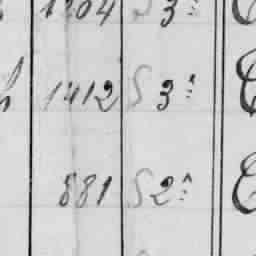 1204 S 3ª
1412 S 3ª
881 S 2ª